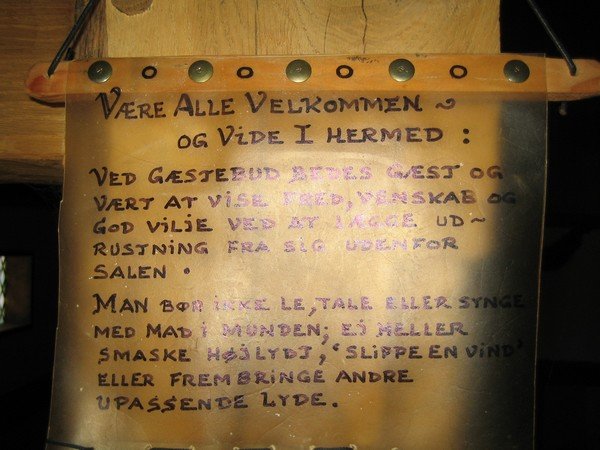 VÆRE ALLE VELKOMMEN ~
OG VIDE I HERMED :
VED GÆSTEBUD BEDES GÆST OG
VÆRT AT VISE FRED, VENSKAB OG
GOD VILJE VED AT LÆGGE UD~
RUSTNING FRA SIG UDENFOR
SALEN .
MAN BØR IKKE LE, TALE ELLER SYNGE
MED MAD I MUNDEN; EJ HELLER
SMASKE HØJLYDT, 'SLIPPE EN VIND'
ELLER FREMBRINGE ANDRE
UPASSENDE LYDE.